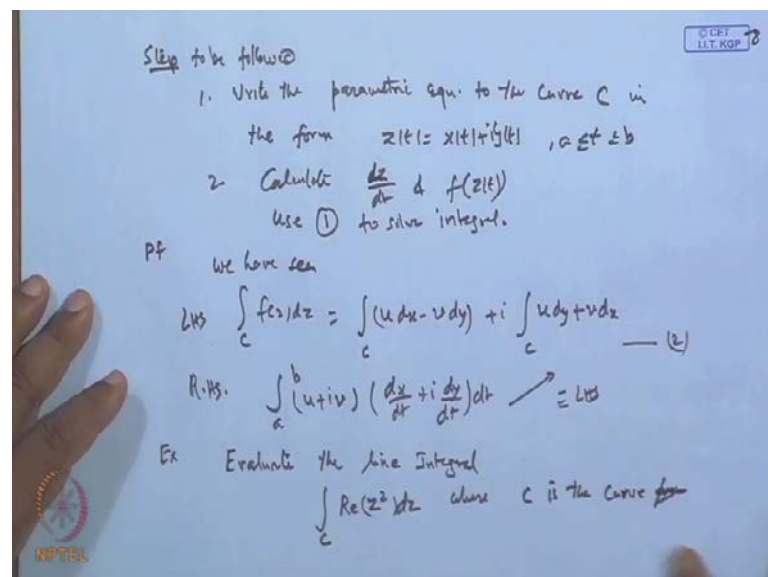 © CET
I.I.T. KGP
Step to be followed
1. Write the parametric equ. to the Curve C in
the form z(t) = x(t)+iy(t) , a ≤ t ≤ b
2 Calculate dz/dt & f(z(t))
use ① to solve integral.
Pf
we have seen
LHS ∫_C f(z)dz = ∫_C (u dx - v dy) + i ∫_C u dy + v dx — (2)
R.HS. ∫_a^b (u+iv) (dx/dt + i dy/dt) dt = LHS
Ex Evaluate the line Integral
∫_C Re(z²)dz where C is the curve
NPTEL